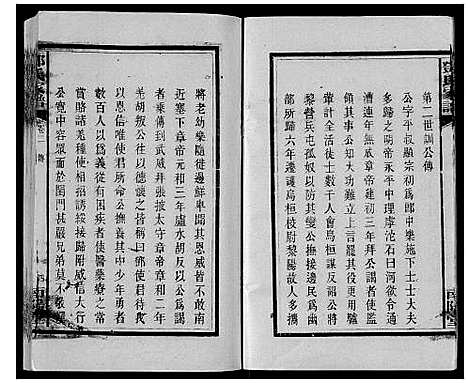 第二世訓公傳
公字平叔顯宗初爲郎中樂施下士士大夫
多歸之明帝永平中理虖沱石臼河欲令通
漕連年無成章帝建初三年拜公謁者使監
領其事公知大功難立上言罷其役更用驢
輦計全活徒士數千人會烏桓謀反詔公將
黎陽營兵屯狐奴以防其變公撫接邊民爲幽
部所歸六年遷護烏桓校尉黎陽故人多攜
將老幼樂隨從邊鮮卑聞其恩威皆不敢南
近塞下章帝元和三年盧水胡反以公爲謁
者乘傳到武威拜張掖太守章帝章和二年
羌胡叛公往以德
以恩信唯使君所命公撫養其中少年勇者
數百人以爲義從有因病者使醫藥療之常
賞賂諸羌種使相招誘接踵附威信大行
公寬中容眾而於閨門甚嚴兄弟莫不敬憚